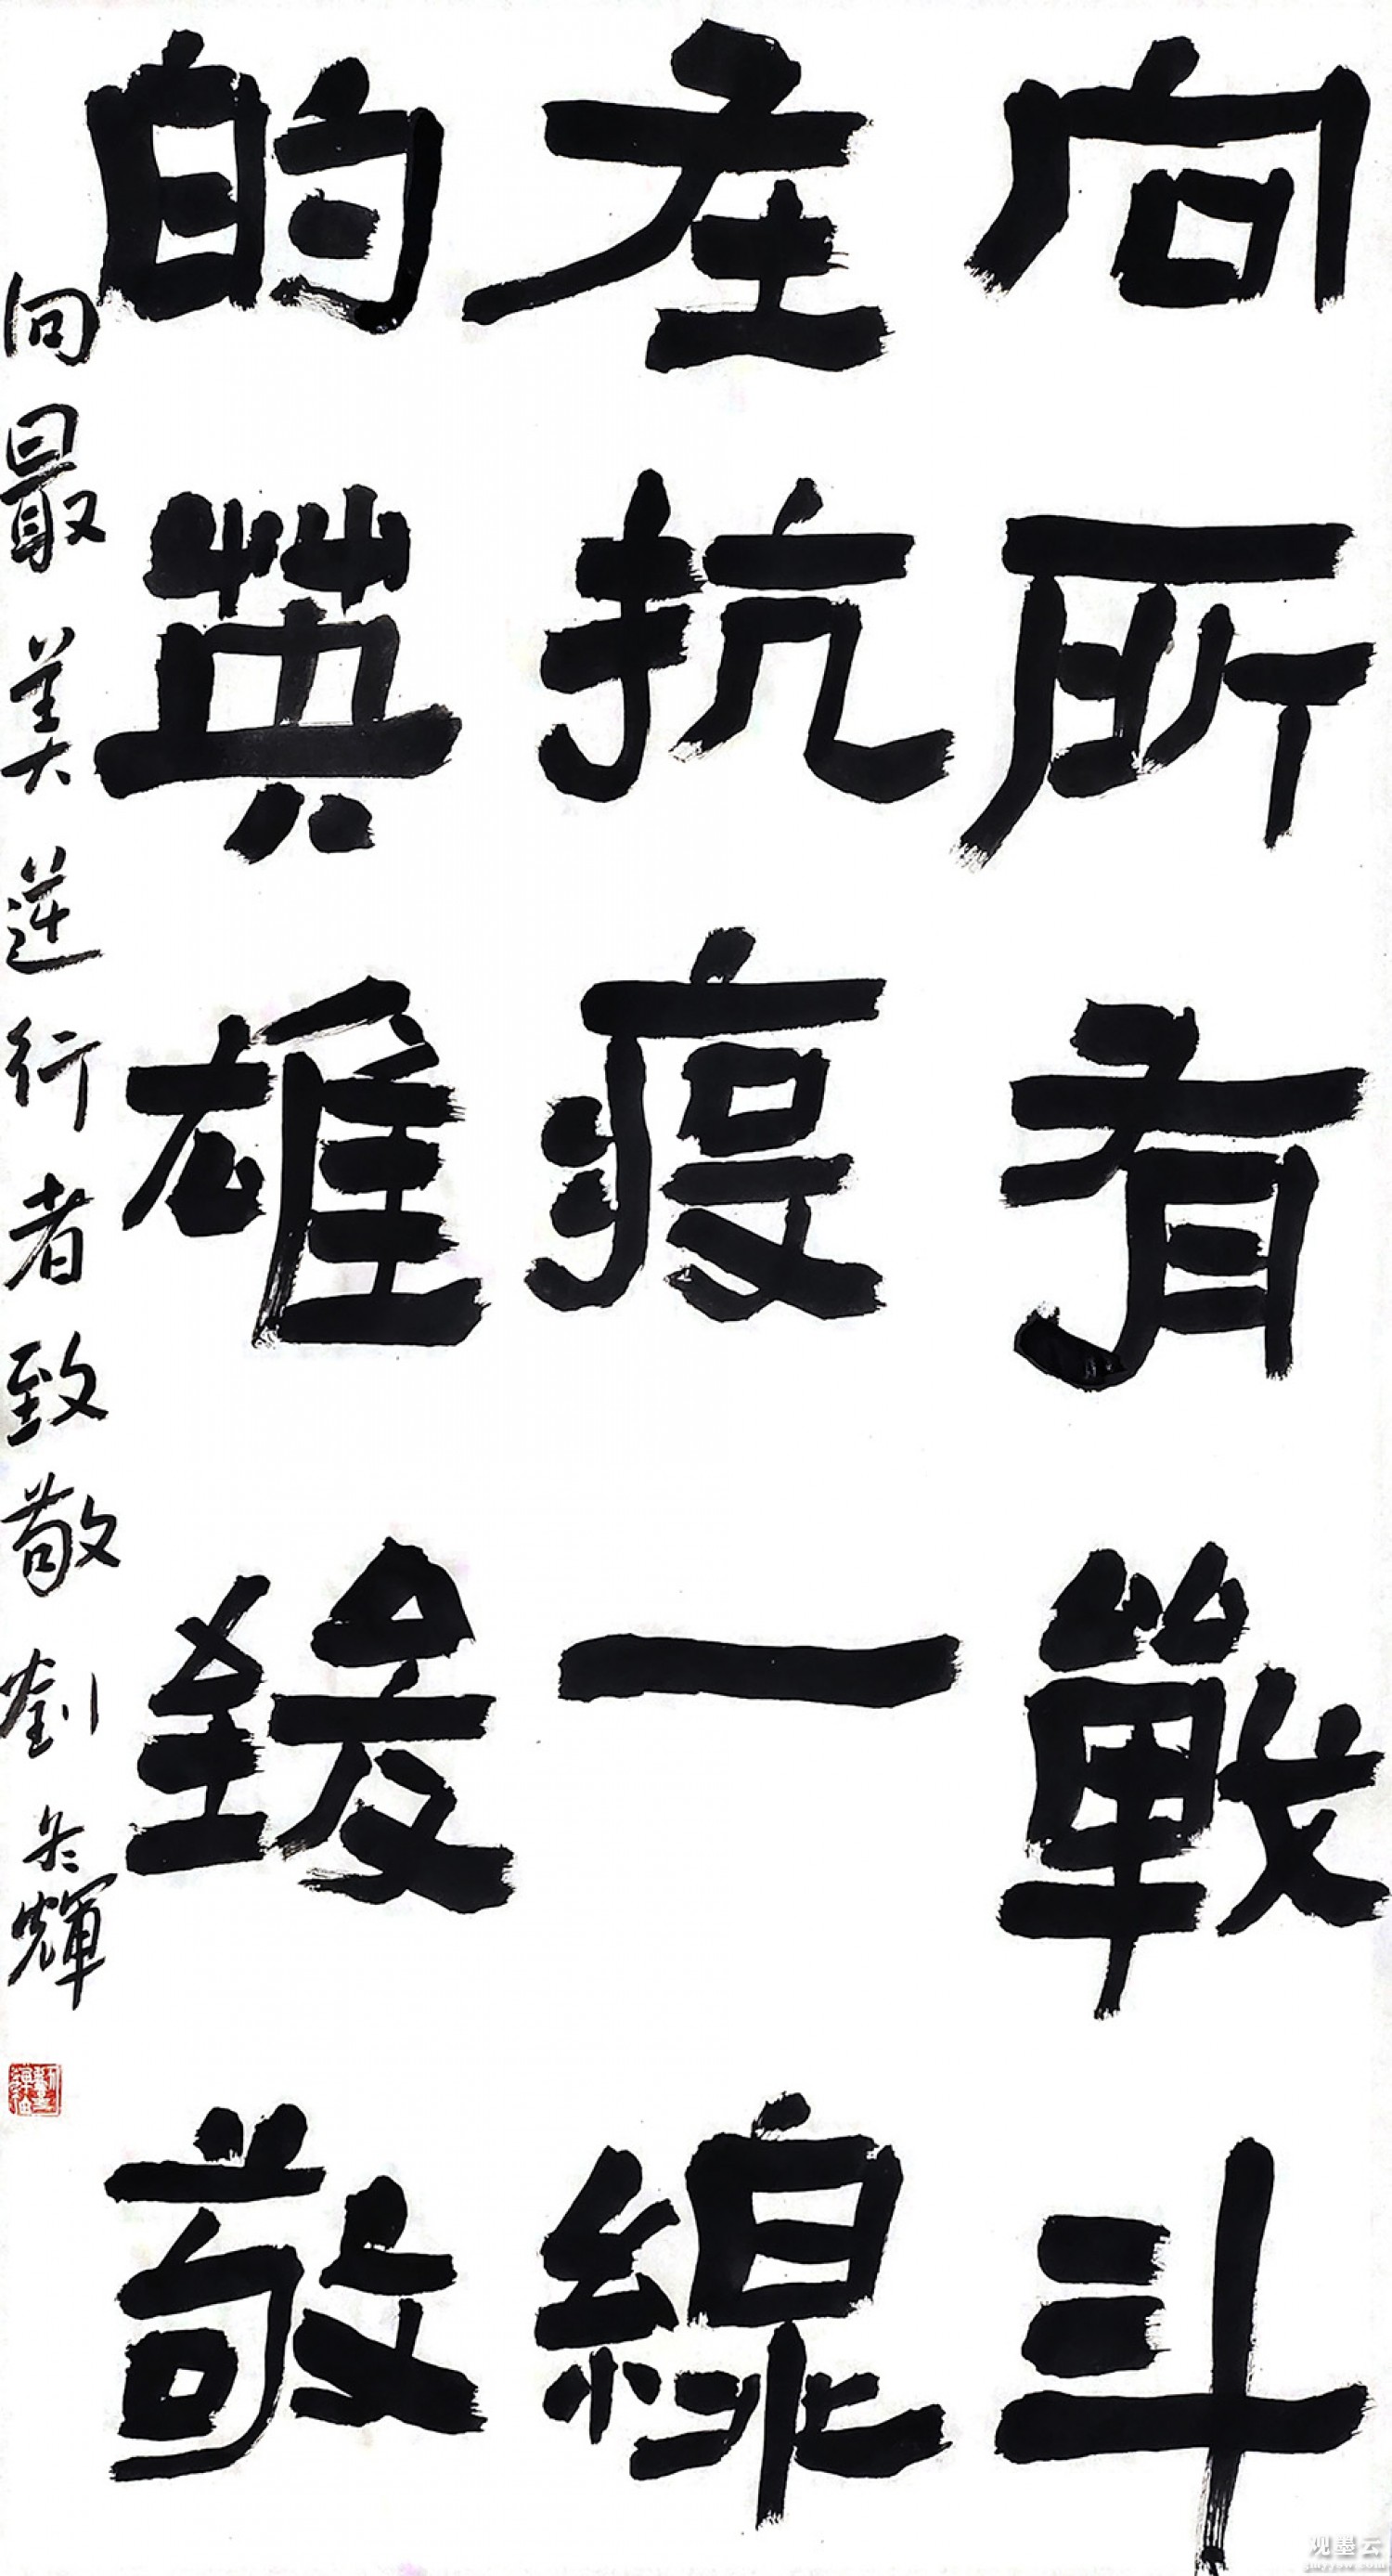 向所有戰斗
在抗疫一線
的英雄致敬
向最美逆行者致敬 劉冬輝
观墨云